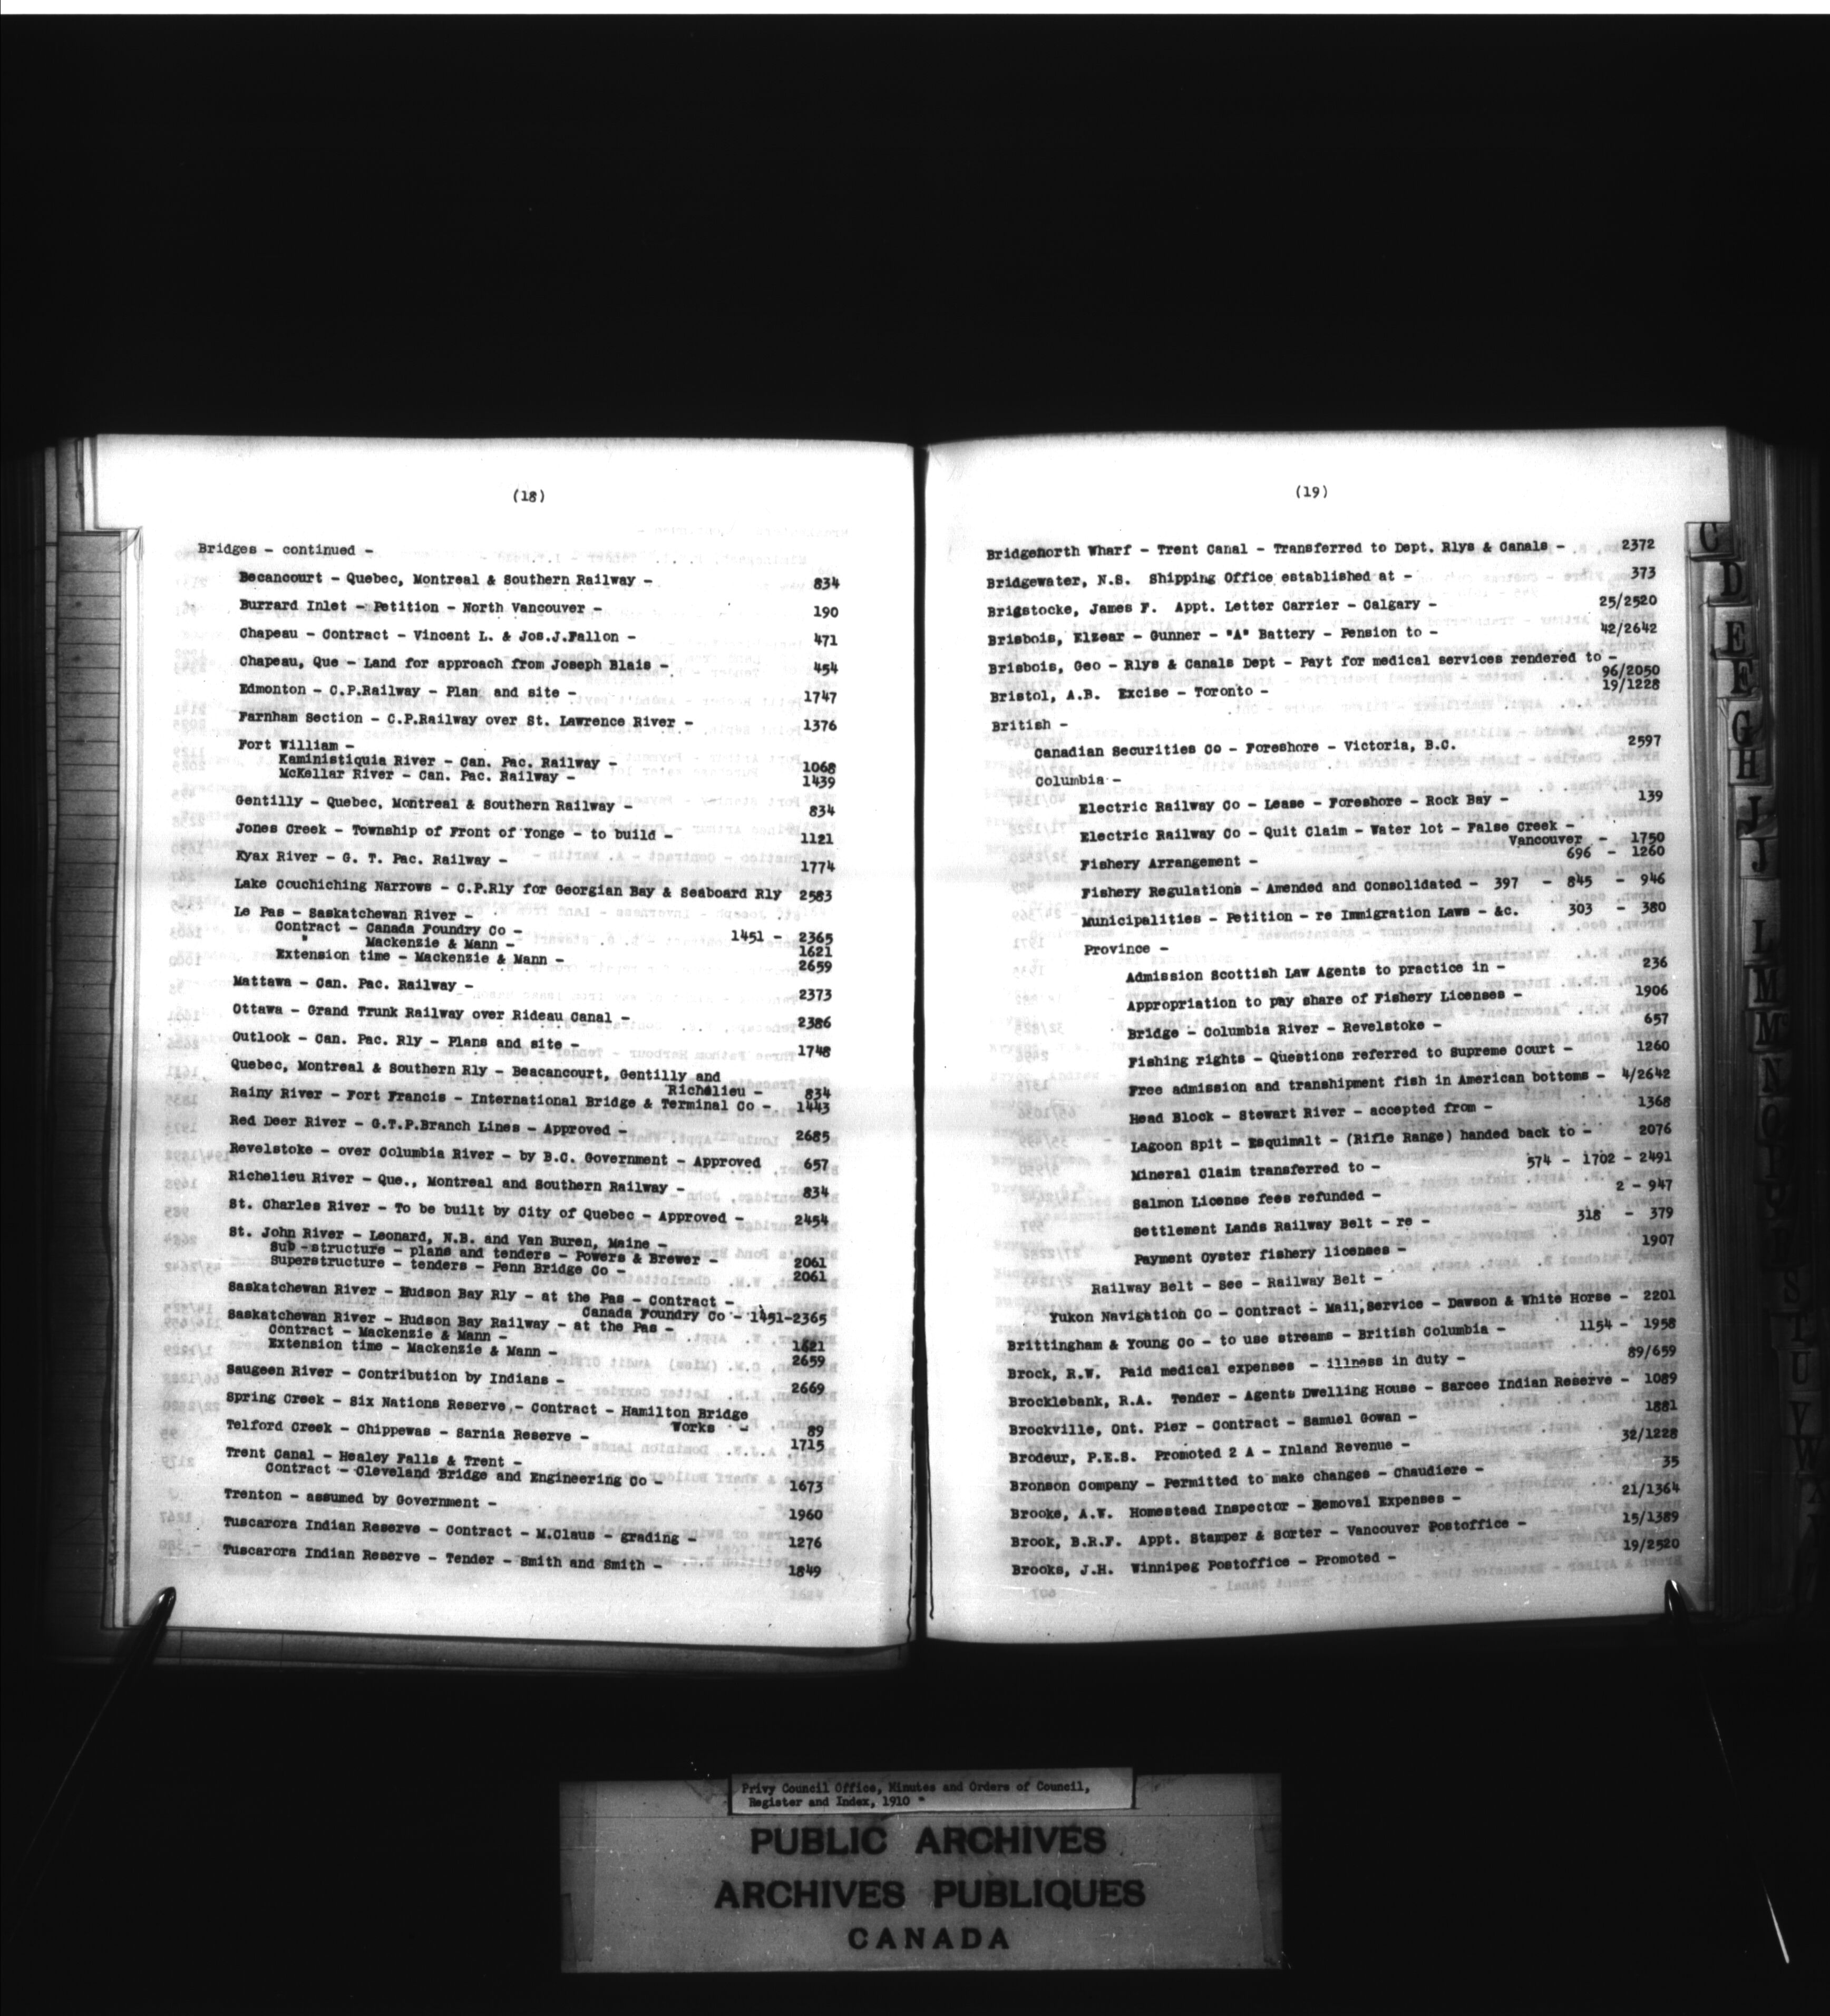 (18)
Bridges - continued -
Becancourt - Quebec, Montreal & Southern Railway - 834
Burrard Inlet - Petition - North Vancouver - 190
Chapeau - Contract - Vincent L. & Jos.J.Fallon - 471
Chapeau, Que - Land for approach from Joseph Blais - 454
Edmonton - C.P.Railway - Plan and site - 1747
Farnham Section - C.P.Railway over St. Lawrence River - 1376
Fort William -
Kaministiquia River - Can. Pac. Railway - 1068
McKellar River - Can. Pac. Railway - 1439
Gentilly - Quebec, Montreal & Southern Railway - 834
Jones Creek - Township of Front of Yonge - to build - 1121
Kyax River - G. T. Pac. Railway - 1774
Lake Couchiching Narrows - C.P.Rly for Georgian Bay & Seaboard Rly 2583
Le Pas - Saskatchewan River -
Contract - Canada Foundry Co - 1451 - 2365
" Mackenzie & Mann - 1621
Extension time - Mackenzie & Mann - 2659
Mattawa - Can. Pac. Railway - 2373
Ottawa - Grand Trunk Railway over Rideau Canal - 2386
Outlook - Can. Pac. Rly - Plans and site - 1748
Quebec, Montreal & Southern Rly - Beacancourt, Gentilly and
Richelieu - 834
Rainy River - Fort Francis - International Bridge & Terminal Co - 1443
Red Deer River - G.T.P.Branch Lines - Approved - 2685
Revelstoke - over Columbia River - by B.C. Government - Approved 657
Richelieu River - Que., Montreal and Southern Railway - 834
St. Charles River - To be built by City of Quebec - Approved - 2454
St. John River - Leonard, N.B. and Van Buren, Maine -
Sub-structure - plans and tenders - Powers & Brewer - 2061
Superstructure - tenders - Penn Bridge Co - 2061
Saskatchewan River - Hudson Bay Rly - at the Pas - Contract -
Canada Foundry Co - 1451-2365
Saskatchewan River - Hudson Bay Railway - at the Pas -
Contract - Mackenzie & Mann - 1621
Extension time - Mackenzie & Mann - 2659
Saugeen River - Contribution by Indians - 2669
Spring Creek - Six Nations Reserve - Contract - Hamilton Bridge
Works - 89
Telford Creek - Chippewas - Sarnia Reserve - 1715
Trent Canal - Healey Falls & Trent -
Contract - Cleveland Bridge and Engineering Co - 1673
Trenton - assumed by Government - 1960
Tuscarora Indian Reserve - Contract - M.Claus - grading - 1276
Tuscarora Indian Reserve - Tender - Smith and Smith - 1849
(19)
Bridgenorth Wharf - Trent Canal - Transferred to Dept. Rlys & Canals - 2372
Bridgewater, N.S. Shipping Office established at - 373
Brigstocke, James F. Appt. Letter Carrier - Calgary - 25/2520
Brisbois, Elzear - Gunner - "A" Battery - Pension to - 42/2642
Brisbois, Geo - Rlys & Canals Dept - Payt for medical services rendered to -
96/2050
Bristol, A.B. Excise - Toronto - 19/1228
British -
Canadian Securities Co - Foreshore - Victoria, B.C. 2597
Columbia -
Electric Railway Co - Lease - Foreshore - Rock Bay - 139
Electric Railway Co - Quit Claim - Water lot - False Creek -
Vancouver - 1750
Fishery Arrangement - 696 - 1260
Fishery Regulations - Amended and Consolidated - 397 - 845 - 946
Municipalities - Petition - re Immigration Laws - &c. 303 - 380
Province -
Admission Scottish Law Agents to practice in - 236
Appropriation to pay share of Fishery Licenses - 1906
Bridge - Columbia River - Revelstoke - 657
Fishing rights - Questions referred to Supreme Court - 1260
Free admission and transhipment fish in American bottoms - 4/2642
Head Block - Stewart River - accepted from - 1368
Lagoon Spit - Esquimalt - (Rifle Range) handed back to - 2076
Mineral Claim transferred to - 574 - 1702 - 2491
Salmon License fees refunded - 2 - 947
Settlement Lands Railway Belt - re - 318 - 379
Payment Oyster fishery licenses - 1907
Railway Belt - See - Railway Belt -
Yukon Navigation Co - Contract - Mail Service - Dawson & White Horse - 2201
Brittingham & Young Co - to use streams - British Columbia - 1154 - 1958
Brock, R.W. Paid medical expenses - illness in duty - 89/659
Brocklebank, R.A. Tender - Agents Dwelling House - Sarcee Indian Reserve - 1089
Brockville, Ont. Pier - Contract - Samuel Gowan - 1881
Brodeur, P.E.S. Promoted 2 A - Inland Revenue - 32/1228
Bronson Company - Permitted to make changes - Chaudiere - 35
Brooke, A.W. Homestead Inspector - Removal Expenses - 21/1364
Brook, B.R.F. Appt. Stamper & Sorter - Vancouver Postoffice - 15/1389
Brooks, J.H. Winnipeg Postoffice - Promoted - 19/2520
C
D
E
F
G
H
I
J
L
M
M
N
O
S
T
U
V
W
Privy Council Office, Minutes and Orders of Council,
Register and Index, 1910 "
PUBLIC ARCHIVES
ARCHIVES PUBLIQUES
CANADA